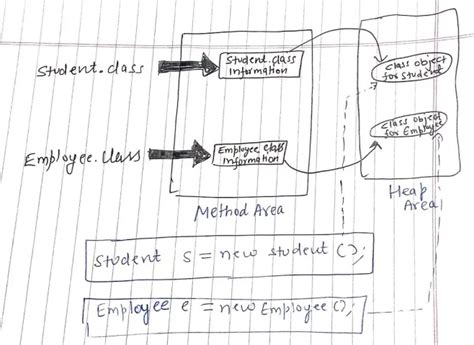 Student.class
Student.class
Information
Class object
for Student
Employee.Class
Employee class
Information
Class object
for Employee
Method Area
Heap
Area
Student s = new student ();
Employee e = new Employee();